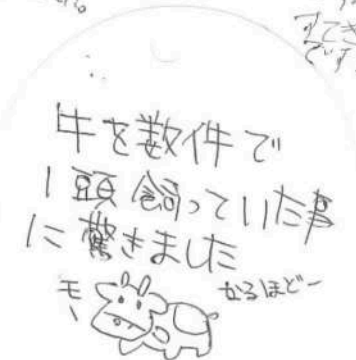 すてき
です
牛を数件で
1頭飼っていた事
に驚きました
モー
なるほどー